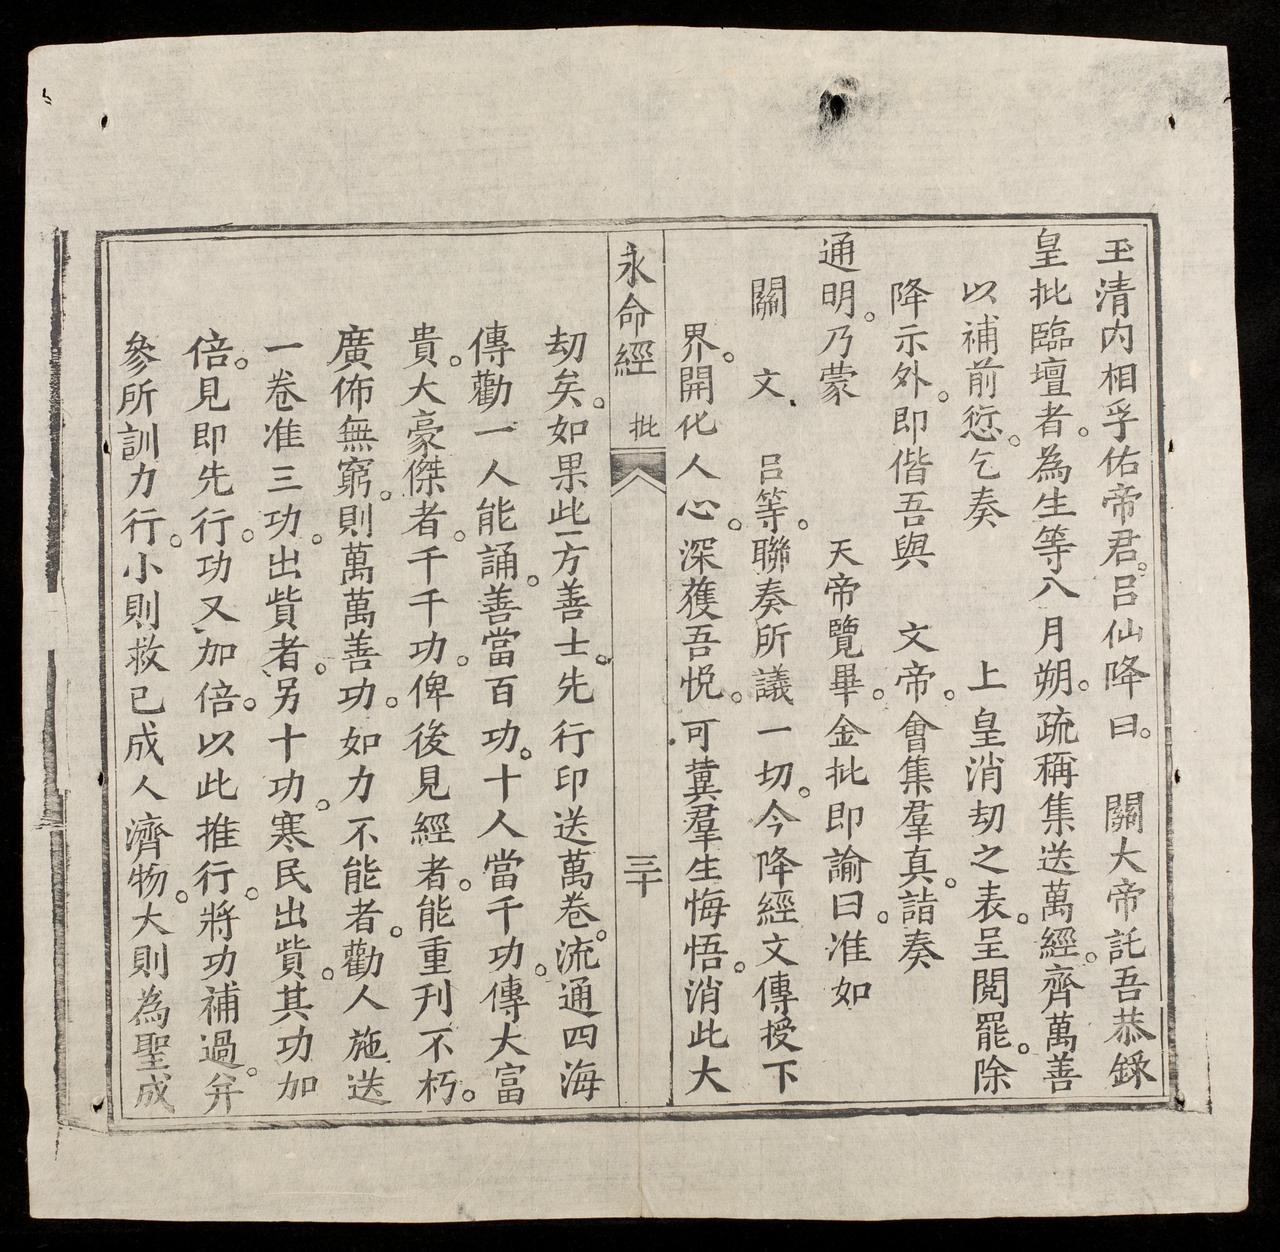 玉清内相孚佑帝君。呂仙降曰。　關大帝託吾恭錄
皇批臨壇者。為生等八月朔。疏稱集送萬經。齊萬善
以補前愆。乞奏　　上皇消劫之表。呈閱罷。除
降示外。即偕吾與　文帝。會集羣真。詣奏
通明。乃蒙　　天帝覽畢。金批即諭曰。准如
關　文　呂等。聯奏所議一切。今降經文傳授下
界。開化人心。深獲吾悅。可冀羣生悔悟。消此大
永命經　批　三十
劫矣。如果此一方善士。先行印送萬卷。流通四海
傳勸一人能誦。善當百功。十人當千功。傳大富
貴。大豪傑者。千千功。俾後見經者。能重刊不朽。
廣佈無窮。則萬萬善功。如力不能者。勸人施送
一卷准三功。出貲者。另十功。寒民出貲。其功加
倍。見即先行。功又加倍。以此推行。將功補過。弁
參所訓力行。小則救已成人濟物。大則為聖成